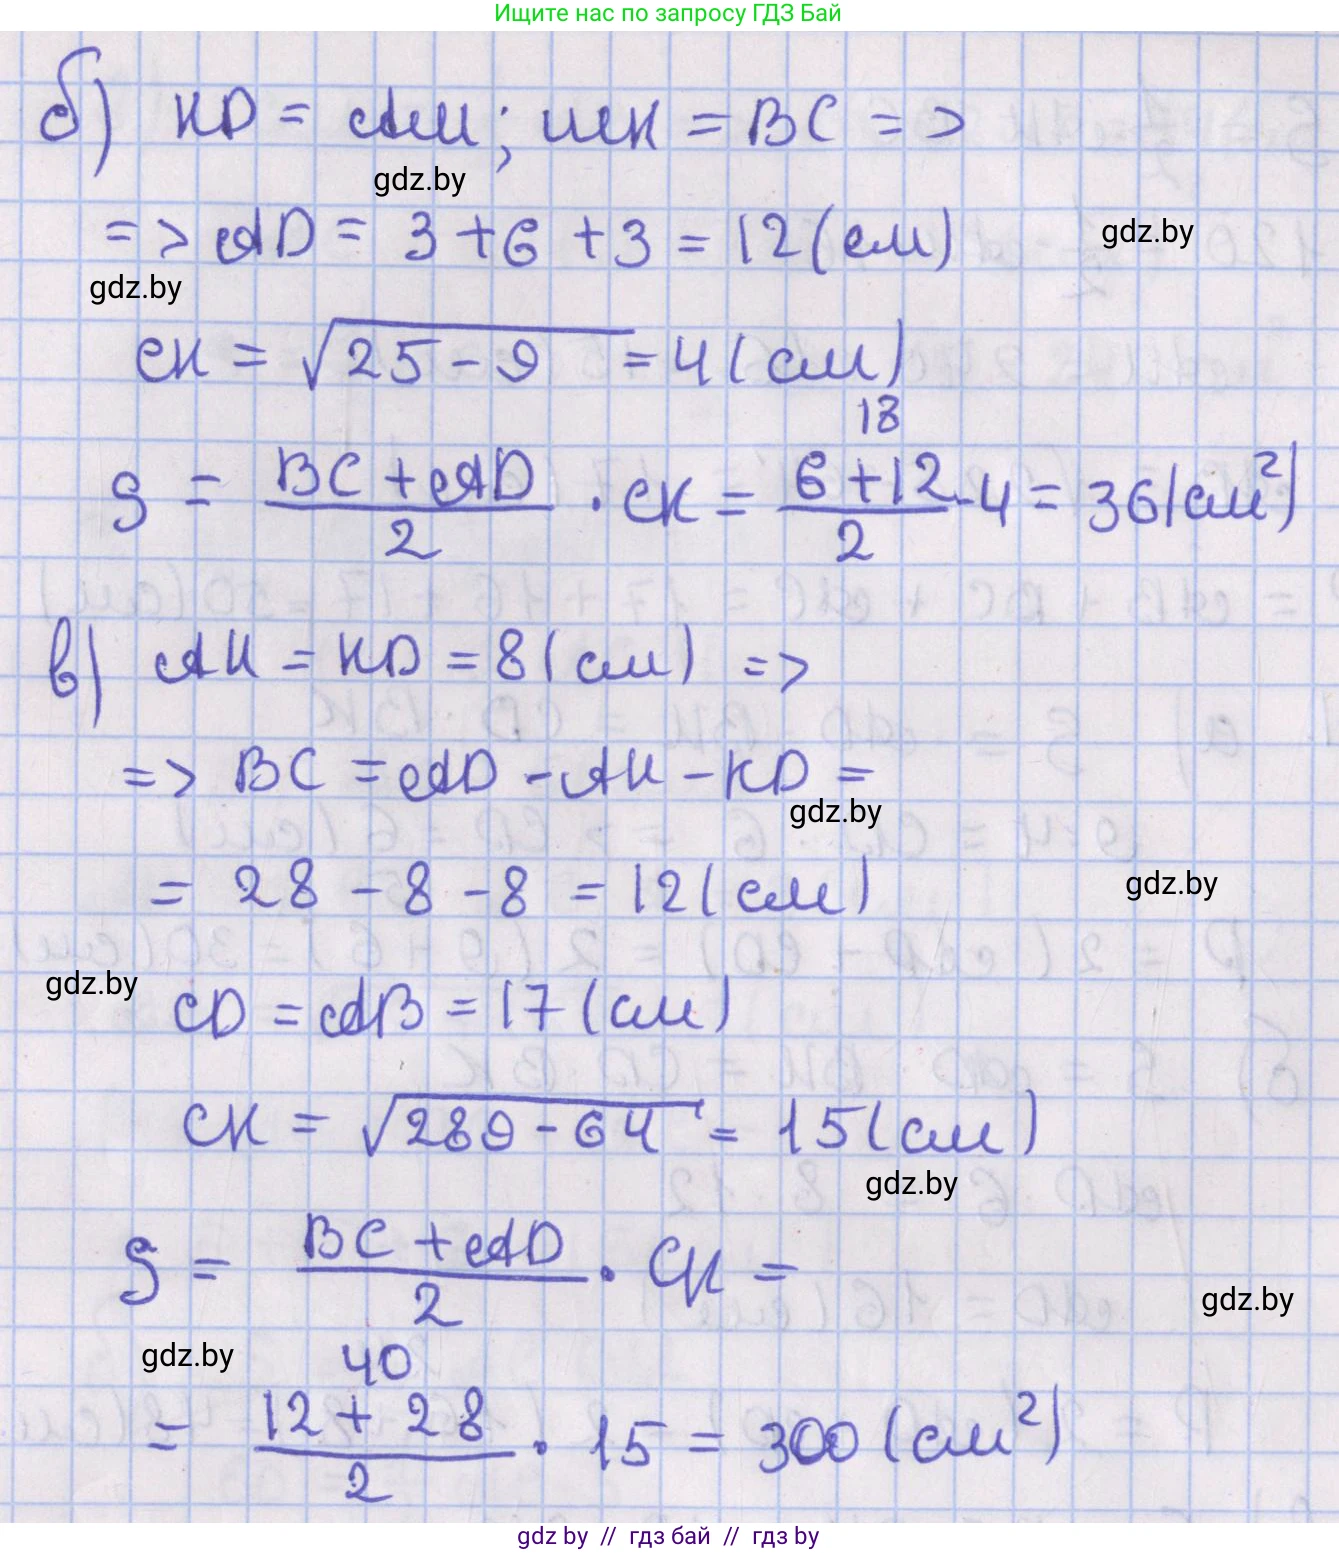 Ищите нас по запросу ГДЗ Бай
б) KD = AM; MK = BC =>
gdz.by
=> AD = 3 + 6 + 3 = 12 (см)
gdz.by
gdz.by
CK = √25 - 9 = 4 (см)
18
S = BC + AD / 2 · CK = 6 + 12 / 2 · 4 = 36 (см²)
в) AK = KD = 8 (см) =>
=> BC = AD - AK - KD =
gdz.by
= 28 - 8 - 8 = 12 (см)
gdz.by
gdz.by
CD = AB = 17 (см)
CK = √289 - 64 = 15 (см)
gdz.by
S = BC + AD / 2 · CK =
gdz.by
gdz.by
40
= 12 + 28 / 2 · 15 = 300 (см²)
gdz by // гдз бай // гдз by